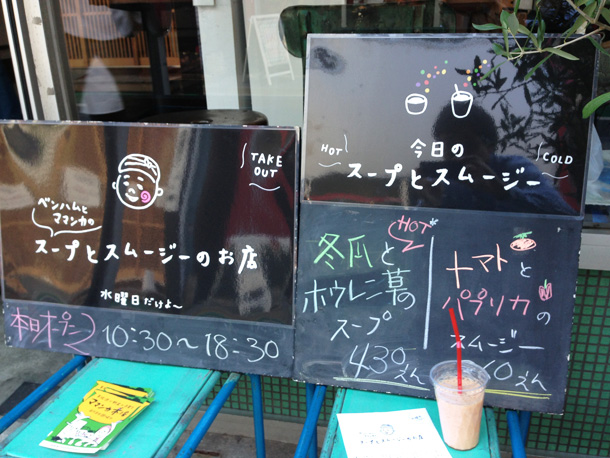 TAKE
OUT
ベンハムと
ママンカの
スープとスムージーのお店
水曜日だけよ〜
本日オープン
10:30〜18:30
HOT
COLD
今日の
スープとスムージー
HOT
冬瓜と
ホウレン草の
スープ
430えん
トマトと
パプリカの
スムージー
えん